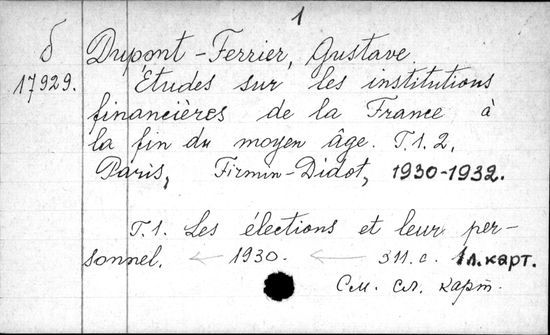 1
б Dupont-Ferrier, Gustave
17929. Études sur les institutions
financières de la France à
la fin du moyen âge. T.1.2.
Paris, Firmin-Didot, 1930-1932.
T.1. Les élections et leur per-
sonnel. ← 1930. ← 311. с. 1л.карт.
См. сл. карт.